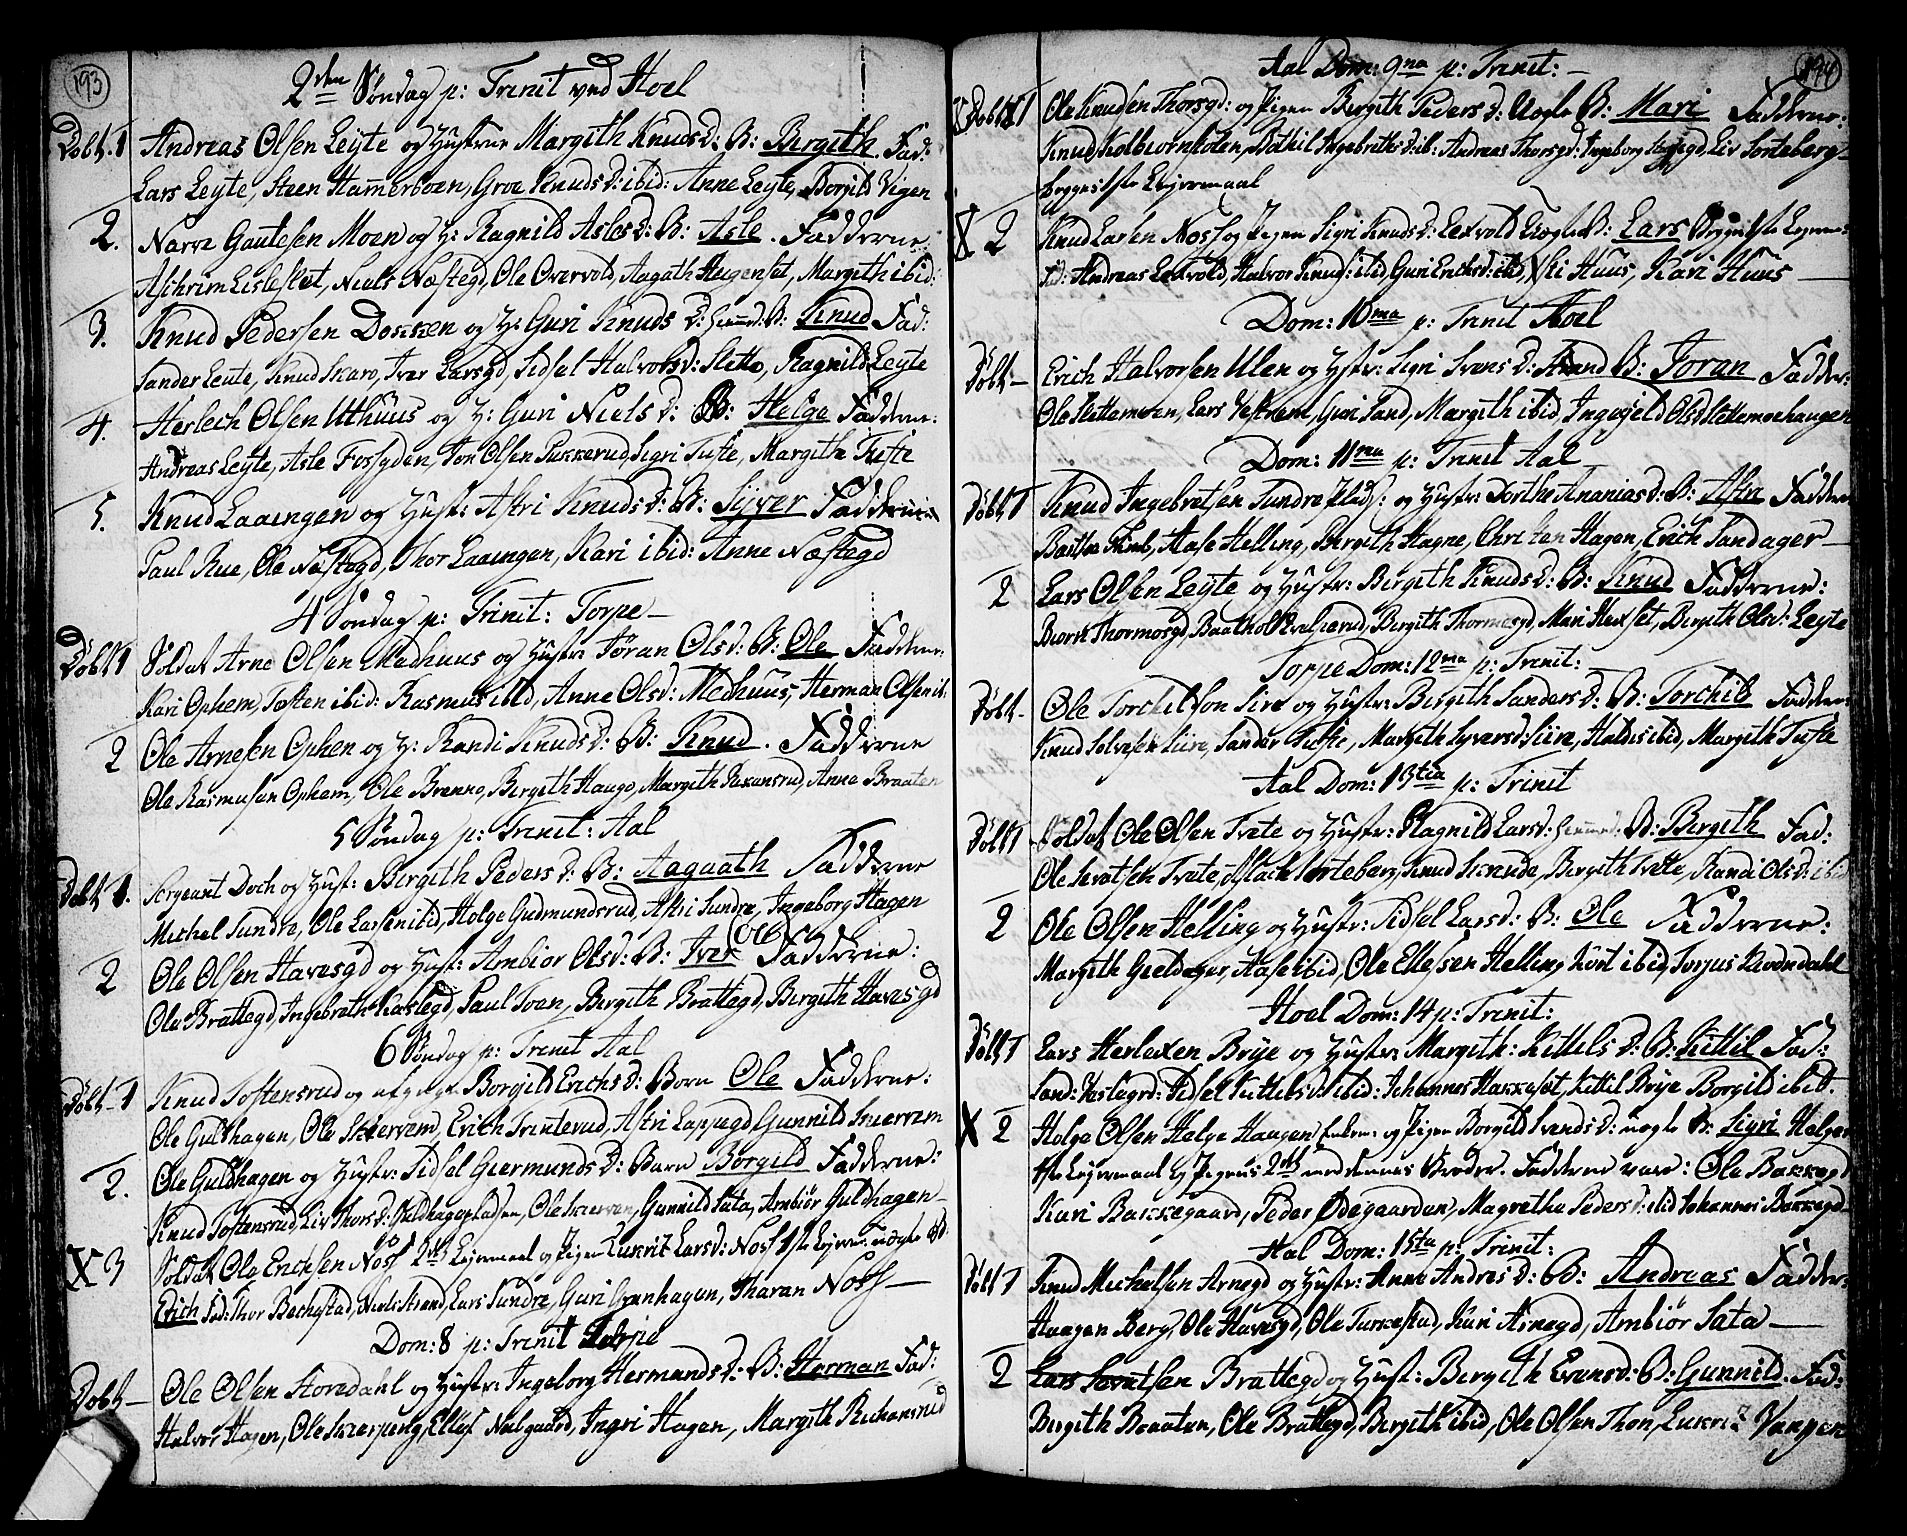 193
2den Søndag p: Trinit ved Hoel
Døbt. 1 Andreas Olsen Leyte og Hustrue Margith Knuds D: B: Bergith. Fad:
Lars Leyte, Steen Hamerboen, Groe Knuds D: ibid: Anne Leyte, Borgild Vigen
2. Narve Gautesen Moen og H: Ragnild Asles D: B: Asle. Fadderne:
Aschrim Eisleflet, Niels Næstegd, Ole Overvold, Aagath Haugenset, Margith ibid:
3. Knud Pedersen Dokken og H: Guri Knuds D: B: Knud Fad:
Sander Leute, Knud Skaro, Iver Larsgd, Sidsel Halvors d: Sletto, Ragnild Leyte
4. Herlech Olsen Uthuus og H: Guri Niels d: B: Helge Fadderne:
Andreas Leyte, Asle Fosgden, Jon Olsen Pukkerud, Sigri Tufte, Margith Tufte
5. Knud Laaingen og Hust: Astri Knuds D: B: Syver Fadderne
Paul Rue, Ole Næstegd, Thor Laaingen, Kari ibid: Anne Næstegd
4 Søndag p: Trinit: Torpe
Døbt 1 Soldat Arne Olsen Medhuus og Hustr: Jøran Ols d: B: Ole Fadderne:
Kari Ophem, Tosten ibid: Rasmus ibid, Anne Olsd: Medhuus, Herman Olsen ib:
2 Ole Arnesen Ophen og H: Randi Knuds D: B: Knud. Fadderne
Ole Rasmusen Ophem, Ole Brenno, Bergith Haugo, Margith Rexansrud, Anne Braaten
5 Søndag p: Trinit: Aal
Døbt 1. Sergeant Doch og Hust: Bergith Peders d: B: Aagaath Fadderne
Michel Sundre, Ole Larsen ibid, Holge Gudmundsrud, Astri Sundre, Ingeborg Hagen
2 Ole Olsen Havesgd og Hust: Ambiør Olsd: B: Iver (Ole) Fadderne:
Ole Brattegd, Ingebreth Kaslegd, Paul Toen, Bergith Brattegd, Bergith Havesgd
6 Søndag p: Trinit Aal
Døbt 1 Knud Tostensrud og Borgild Erichs d: Barn Ole Fadderne:
Ole Guldhagen, Ole Skiervem, Erich Trinterud, Astri Lappegd, Gunnild Skiervem
2. Ole Guldhagen og Hustr: Sidsel Giermunds D: Barn Borgild Fadderne:
Knud Tostensrud, Liv Thors D: Guldhagepladsen, Ole Skierven, Gunnild Sata, Ambiør Guldhagen
X 3 Soldat Ole Erichsen Noss 2det Leyermaal og Pigen Lukrit Larsd: Noss 1ste Leyerm: uægte B:
Erich Fad: Thor Bechestad, Niels Strand, Lars Sundre, Guri Grønhagen, Tharan Noss
Dom: 8 p: Trinit Torpe
Døbt Ole Olsen Storedahl og Hustr: Ingeborg Hermunds d: B: Herman Fad:
Halvor Hagen, Ole Skierping, Ellef Nulgaard, Ingri Hagen, Margith Richansrud
194
Aal Dom: 9na p: Trinit:
X Døbt 1 Ole Knudsen Thorsgd: og Pigen Bergith Peders d: Uægte B: Mari Fadderne:
Knud Kolbiørnsloen, Bothil Ingebreths d: ib: Andreas Thorsgd: Ingeborg, Liv Sorteberg
begges 1ste Leyermaal
X 2 Knud Larsen Noss og Pigen Sigri Knuds d: Lexvold Uægte B: Lars Begge 1ste Leyerm:
Fad: Andreas Lexvold, Halvor Knuds: ibid, Guri Erichsd: ibid, Huus, Kari Huus
Dom: 10ma p: Trinit Hoel
Døbt Erich Halvorsen Ulen og Hystr: Sigri Svens D: Strand B: Joran Fadder:
Ole Slettemoen, Lars Vestrem, Guri Sand, Margith ibid, Ingegield Olsd Slettemoehaugen
Dom: 11ma p: Trinit Aal
Døbt 1 Knud Ingebretsen Sundre Plads: og Hustr: Dorthe Ananias d: B: Astri Fadderne
Barthe, Aase Helling, Bergith Hagne, Christen Hagen, Erich Sandager
2 Lars Olsen Leyte og Hustr: Bergith Knuds D: B: Knud Fadderne:
Biorn Thormosgd, Baathol, Bergith Thormosgd, Mari Hexset, Bergith Olsd: Leyte
Torpe Dom: 12ma p: Trinit:
Døbt Ole Torchildson Sire og Hustr: Bergith Sanders D: B: Torchil Fadderne:
Knud Solvesen Siire, Sander Tufte, Margith Syversd: Siire, Haldis ibid, Margith Tufte
Aal Dom: 13tia p: Trinit
Døbt 1 Soldat Ole Olsen Tvete og Hustr: Ragnild Larsd: B: Bergith Fad:
Ole Tvete, Aslach Sorteberg, Knud Skrinde, Bergith Tvete, Randi Olsd: ibid
2 Ole Olsen Helling og Hustr: Sidsel Larsd: B: Ole Fadderne:
Margith Gieldager, Aase ibid, Ole Ellefsen Helling, Kort ibid, Torjus Kvendahl
Hoel Dom: 14 p: Trinit:
Døbt 1 Lars Herlexen Brye og Hustr: Margith: Kittels D: B: Kittil Fad:
Sand: Haslegrd: Sidsel Kittels d: ibid: Johannes Hakkeset, Kittil Brye Borgild ibid.
X 2 Holge Olsen Helge Haugen og Pigen Borgild Svends D: uægte B: Sigri Helges
1ste Leyermaal og Pigens 2det med dennes Broder. Fadderne vare: Ole Bakkegd
Kari Bakkegaard, Peder Ødegaarden, Magretha Peders d: ibid Johannes Bakkegd
Aal Dom: 15ta p: Trinit:
Døbt 1 Knud Michelsen Arnegd og Hustr: Anne Andres D: B: Andreas Fadder:
Haagen Berg, Ole Havesgd, Ole Turkestad, Kari Arnegd, Ambiør Sata
2 Lars Brattegd og Hust: Bergith Evensd: B: Gunnild. Fad:
Bergith Braaten, Ole Brattegd, Bergith ibid, Ole Olsen Thon, Lukri Vangen